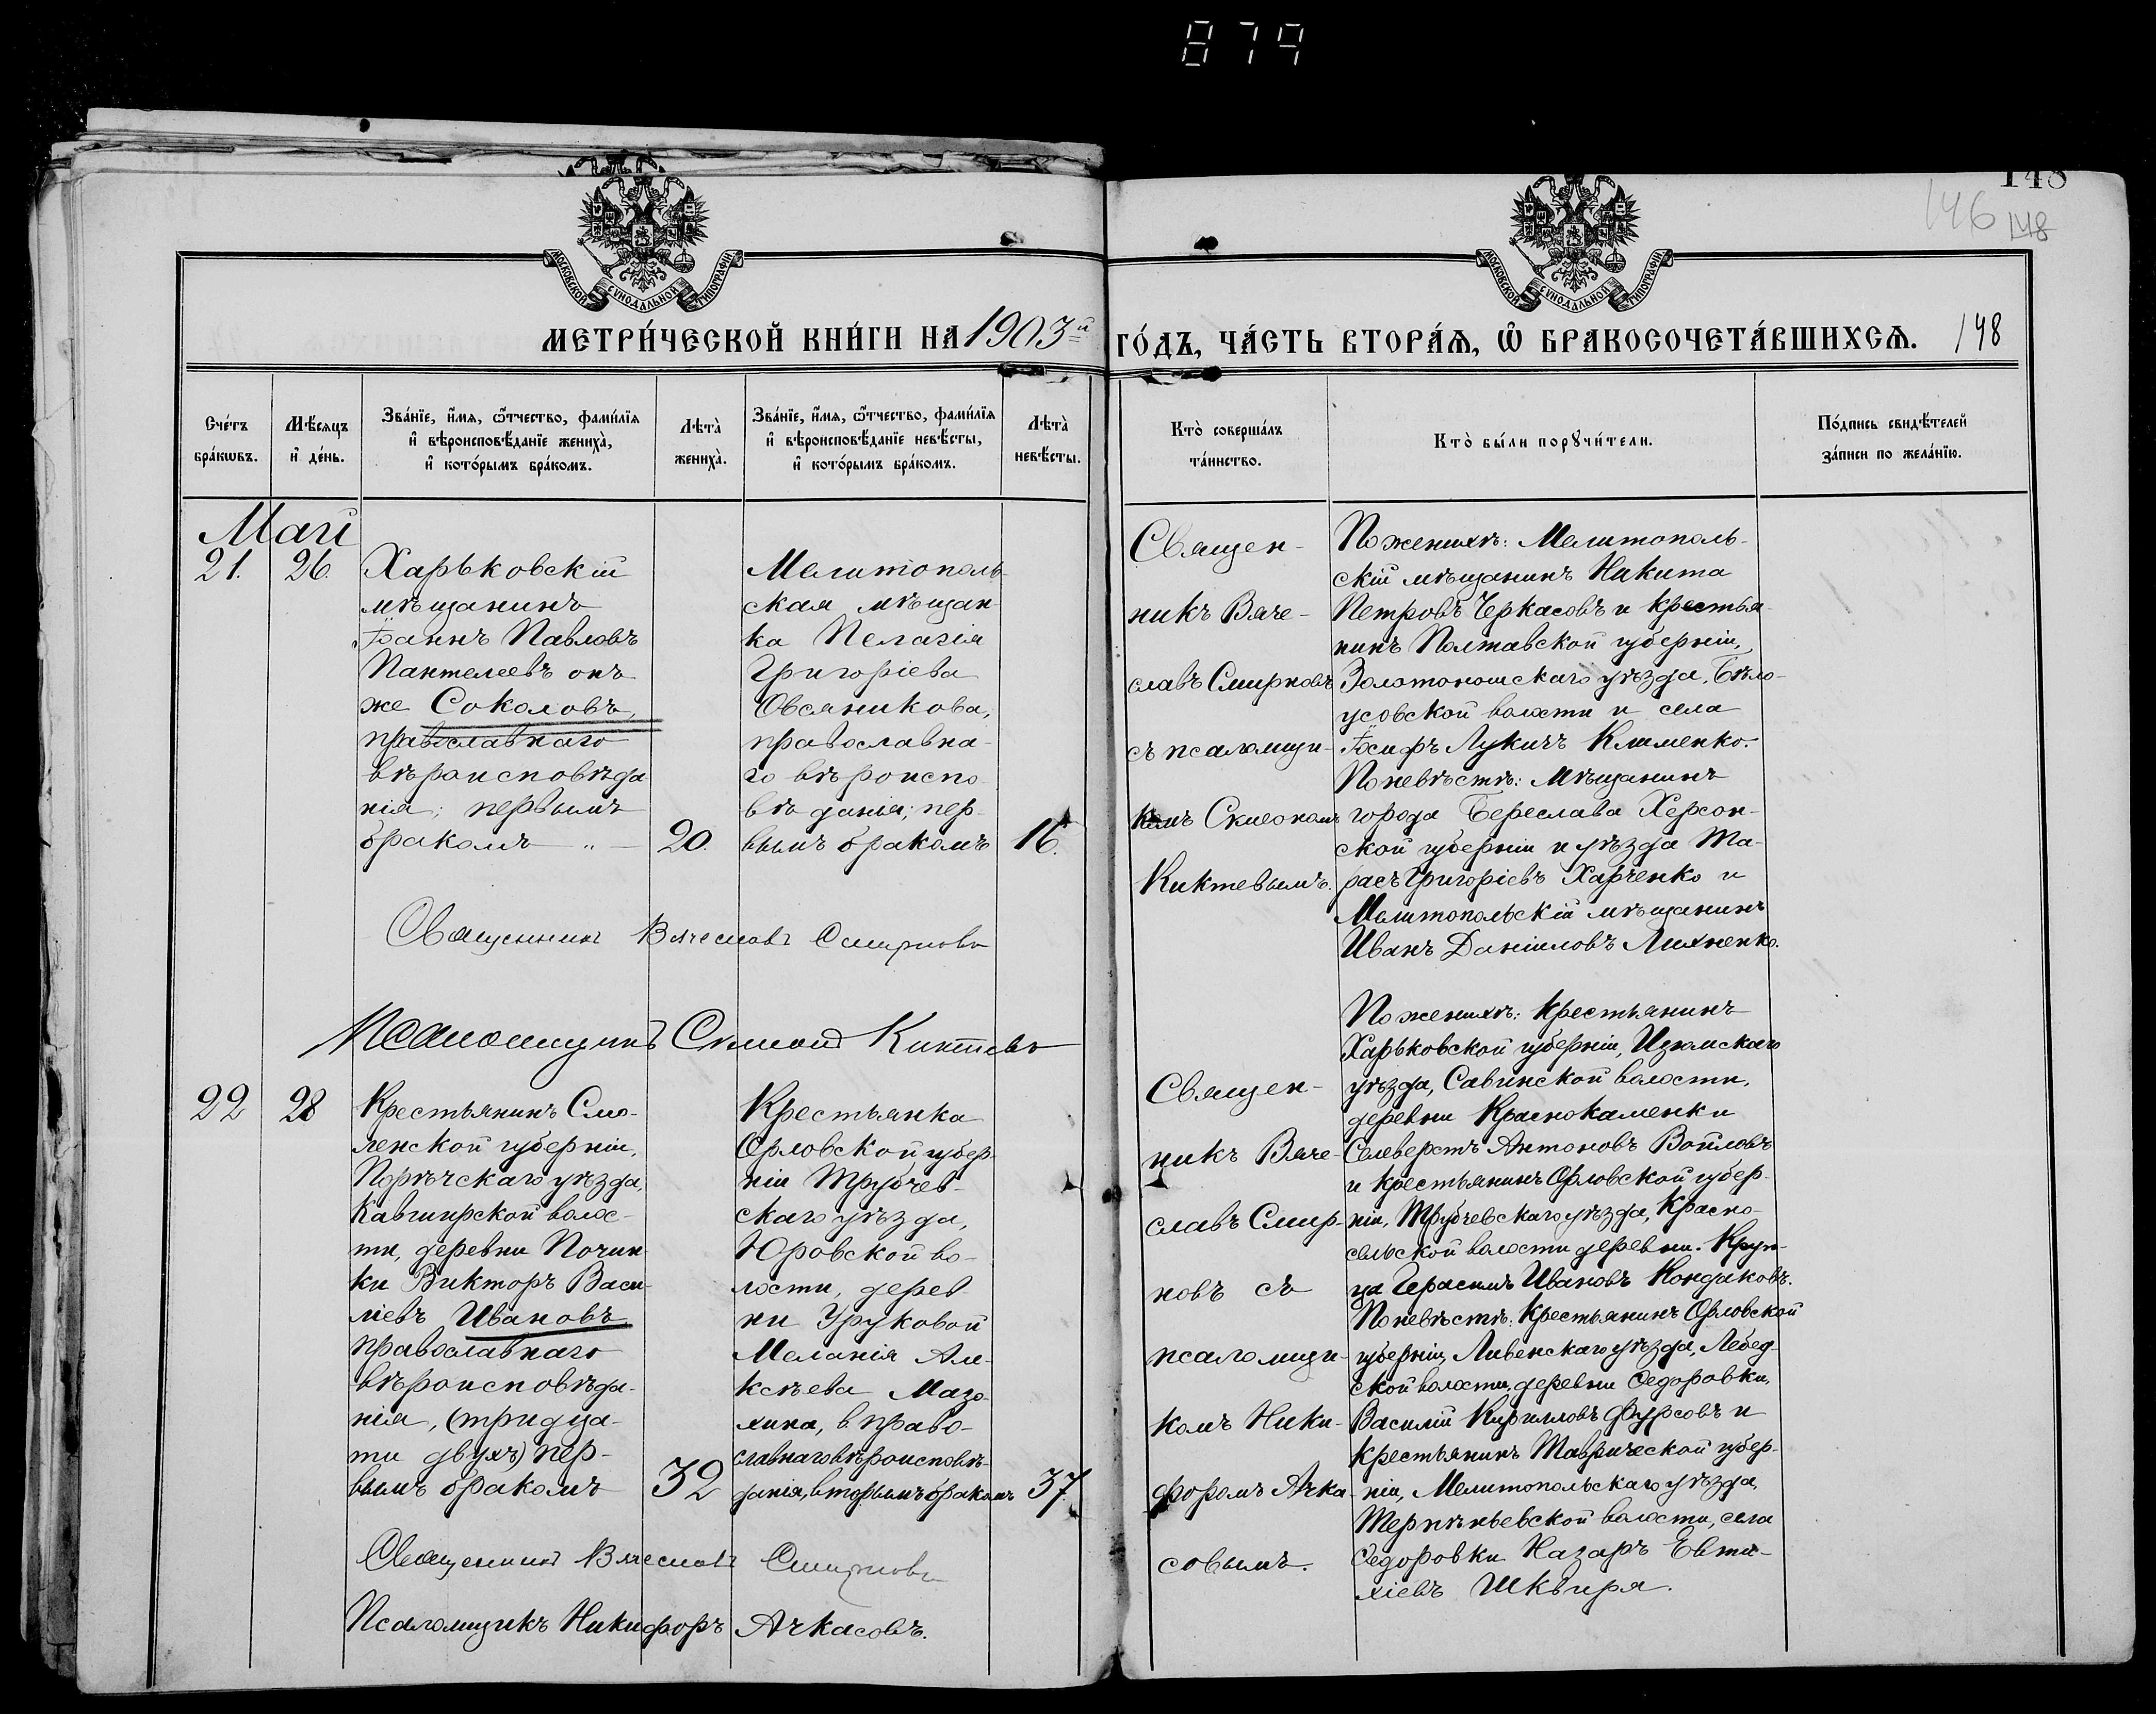 879
148
146 148
МОСКОВСКОЙ СѴНОДАЛЬНОЙ ТИПОГРАФІИ
МОСКОВСКОЙ СѴНОДАЛЬНОЙ ТИПОГРАФІИ
МЕТРИ́ЧЕСКОЙ КНИ́ГИ НА 1903й ГО́ДЪ, ЧА́СТЬ ВТОРА́Ѧ, Ѽ БРАКОСОЧЕТА́ВШИХСѦ. 148
Сче́тъ бра́кѡвъ.
Мѣ́сяцъ и҆ де́нь.
Зва́нїе, и҆́мѧ, ѻ҆́тчество, фами́лїѧ и҆ вѣроисповѣ́данїе жениха̀, и҆ кото́рымъ бра́комъ.
Лѣта̀ жениха̀.
Зва́нїе, и҆́мѧ, ѻ҆́тчество, фами́лїѧ и҆ вѣроисповѣ́данїе невѣ́сты, и҆ кото́рымъ бра́комъ.
Лѣта̀ невѣ́сты.
Кто̀ соверша́лъ та́инство.
Кто̀ бы́ли порꙋчи́тели.
По́дпись свидѣ́телей за́писи по жела́нїю.
Май
21. 26.
Харьковскій
мѣщанинъ
Іоаннъ Павловъ
Пантелеевъ онъ
же Соколовъ,
православнаго
вѣроисповѣда
нія; первымъ
бракомъ „ —
20.
Мелитополь
ская мѣщан
ка Пелагія
Григоріева
Овсяникова,
православна-
го вѣроиспо
вѣданія; пер-
вымъ бракомъ
16.
Священ-
никъ Вяче-
славъ Смирновъ
съ псаломщи-
комъ Симономъ
Киктевымъ.
По женихѣ: Мелитополь-
скій мѣщанинъ Никита
Петровъ Черкасовъ и крестья-
нинъ Полтавской губерніи,
Золотоношскаго уѣзда, Бѣло-
усовской волости и села
Іосифъ Лукичъ Клименко.
По невѣстѣ: Мѣщанинъ
города Береслава Херсон-
ской губерніи и уѣзда Та-
расъ Григоріевъ Харченко и
Мелитопольскій мѣщанинъ
Иванъ Даніиловъ Лихненко.
Священникъ Вячеславъ Смирновъ
Псаломщикъ Симонъ Киктевъ
22 28
Крестьянинъ Смо-
ленской губерніи,
Порѣчскаго уѣзда,
Кавширской волос-
ти, деревни Почин
ки Викторъ Васи-
ліевъ Ивановъ
православнаго
вѣроисповѣда-
нія, (тридца-
ти двухъ) пер-
вымъ бракомъ
32
Крестьянка
Орловской губер
ніи Трубчев-
скаго уѣзда,
Юровской во-
лости, дерев
ни Уруковой
Меланія Але-
ксѣева Мазо
хина, в право-
славнаго вѣроисповѣ-
данія, вторымъ бракомъ
37.
Священ-
никъ Вяче-
славъ Смир-
новъ съ
псаломщи-
комъ Ники-
форомъ Ачка
совымъ.
По женихѣ: Крестьянинъ
Харьковской губерніи, Изюмскаго
уѣзда, Савинской волости,
деревни Краснокаменки
Селеверстъ Антоновъ Войловъ
и крестьянинъ Орловской губер-
ніи, Трубчевскаго уѣзда, Красно-
сельской волости деревни. Круп-
ца Герасимъ Ивановъ Кондаковъ.
По невѣстѣ: Крестьянинъ Орловской
губерніи, Ливенскаго уѣзда, Лебед-
ской волости, деревни Ѳедоровки,
Василій Кирилловъ Фурсовъ и
крестьянинъ Таврической губер-
ніи, Мелитопольскаго уѣзда,
Терпѣньевской волости, села
Ѳедоровки Назаръ Евти-
хіевъ Шквиря.
Священникъ Вячеславъ Смирновъ
Псаломщикъ Никифоръ Ачкасовъ.